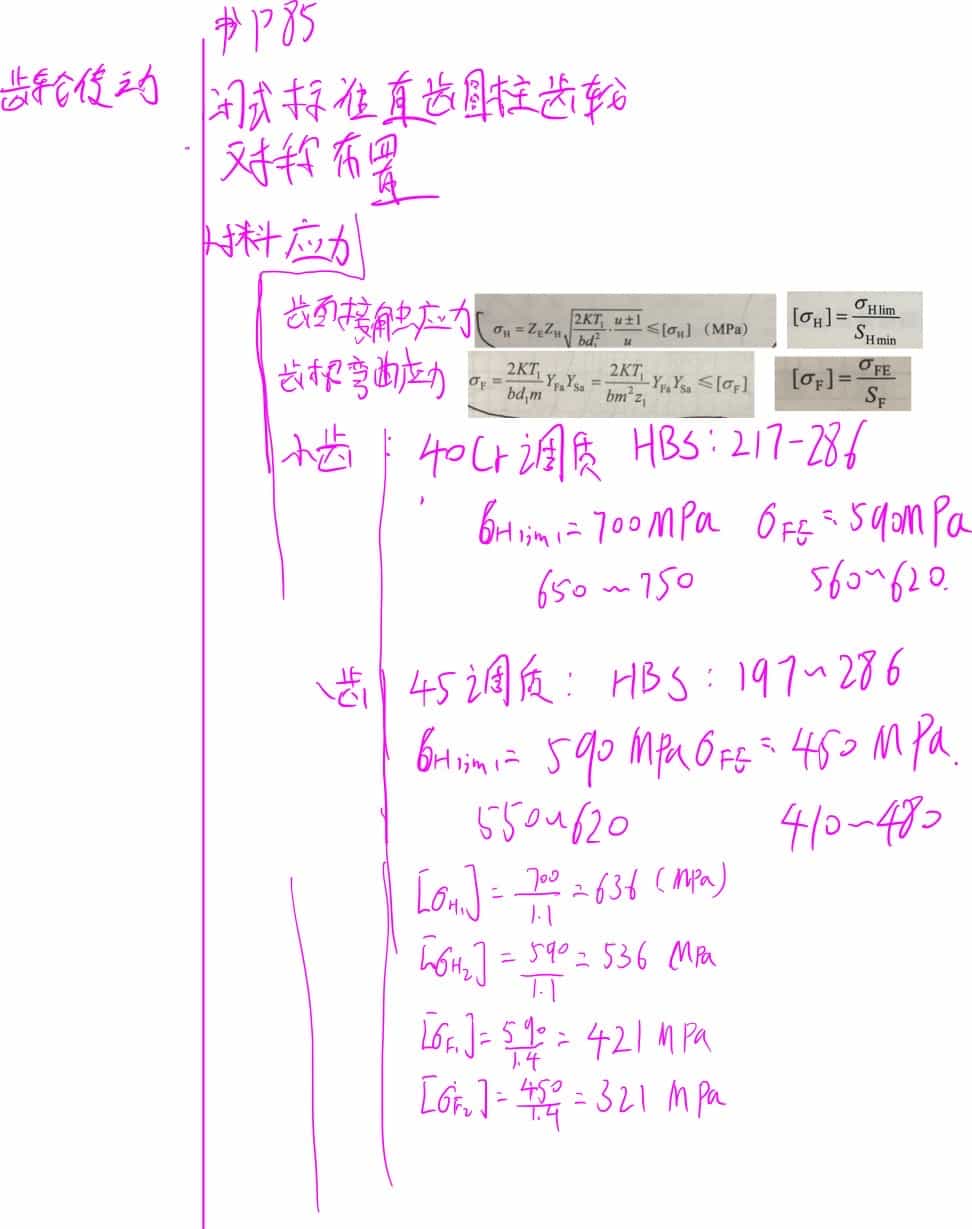 书P85
齿轮传动
闭式标准直齿圆柱齿轮
对称布置
材料应力
齿面接触应力 σ_H = Z_E Z_H √(2KT₁/bd₁² · (u±1)/u) ≤ [σ_H] (MPa) [σ_H] = σ_Hlim/S_Hmin
齿根弯曲应力 σ_F = 2KT₁/(bd₁m) Y_Fa Y_Sa = 2KT₁/(bm²z₁) Y_Fa Y_Sa ≤ [σ_F] [σ_F] = σ_FE/S_F
小齿: 40Cr 调质 HBS: 217-286
σ_Hlim1 = 700 MPa σ_FE = 590 MPa
650~750 560~620.
齿 45调质: HBS: 197~286
σ_Hlim1 = 590 MPa σ_FE = 450 MPa.
550~620 410~480
[σ_H1] = 700/1.1 = 636 (MPa)
[σ_H2] = 590/1.1 = 536 MPa
[σ_F1] = 590/1.4 = 421 MPa
[σ_F2] = 450/1.4 = 321 MPa